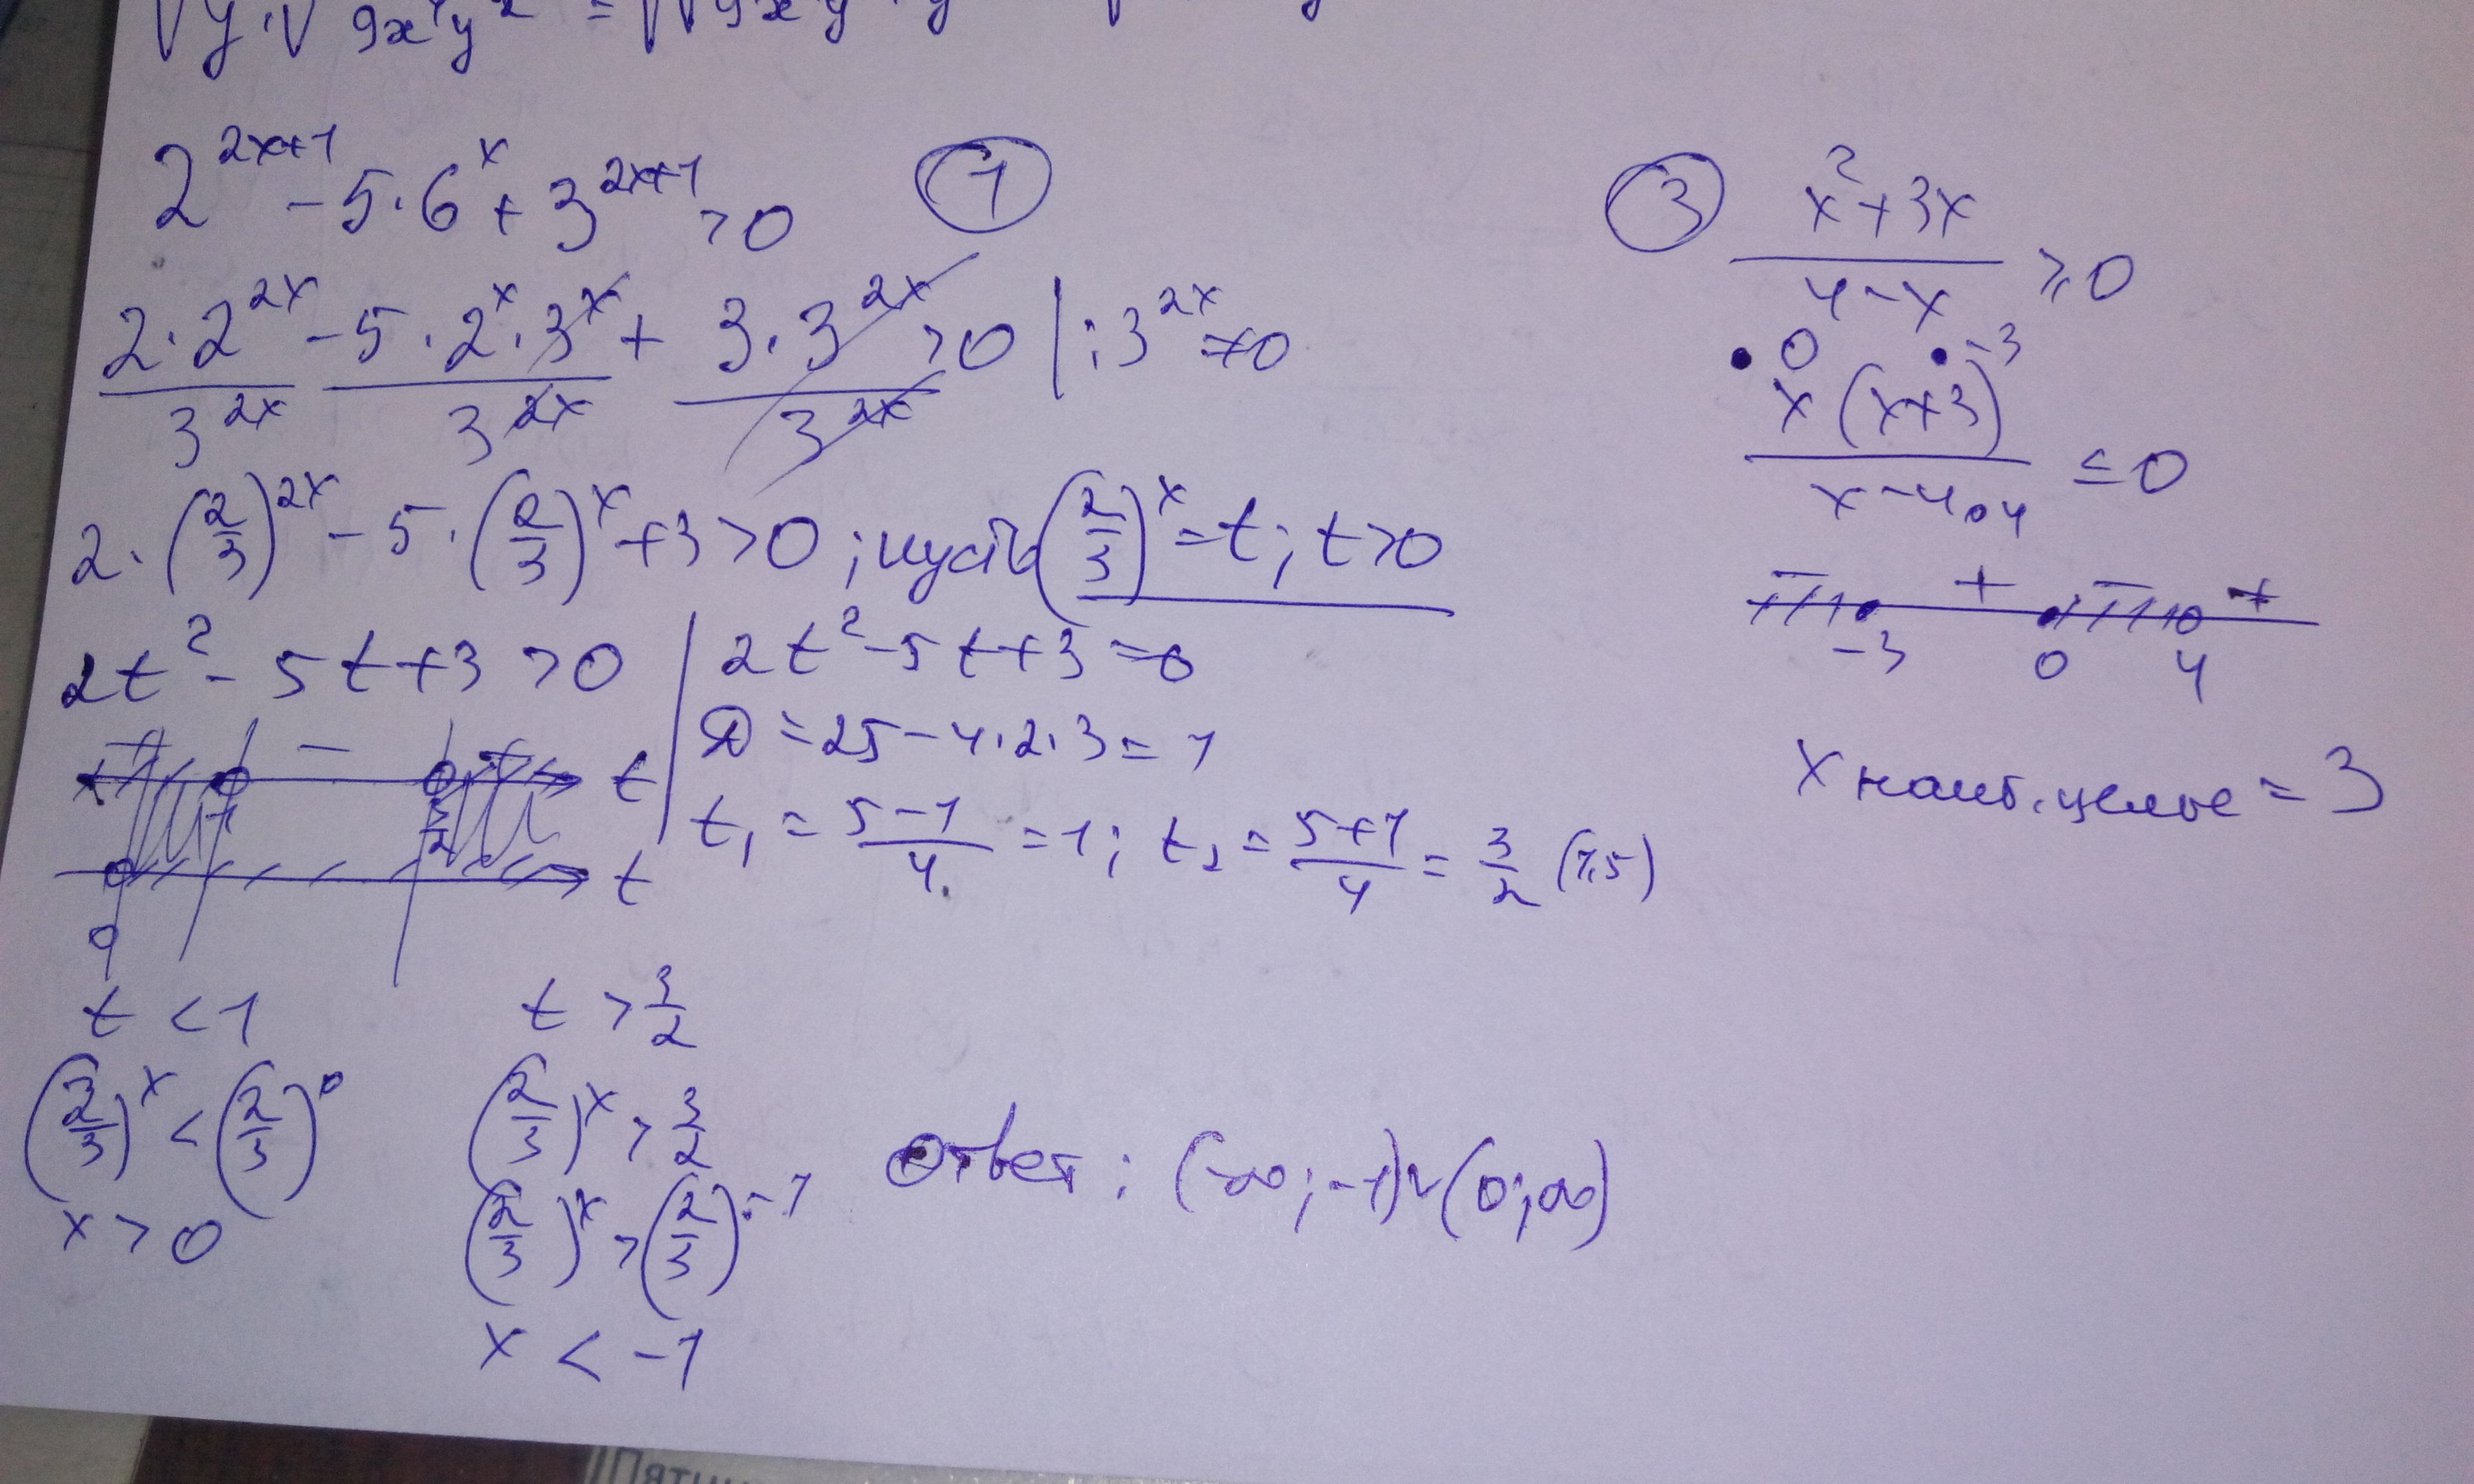 √y·√9x⁴y² = √√9x y · y
2^(2x+1) - 5·6^x + 3^(2x+1) > 0 ①
(2·2^(2x))/3^(2x) - (5·2^x·3^x)/3^(2x) + (3·3^(2x))/3^(2x) > 0 | : 3^(2x) ≠ 0
2·(2/3)^(2x) - 5·(2/3)^x + 3 > 0 ; пусть (2/3)^x = t ; t > 0
2t² - 5t + 3 > 0 | 2t² - 5t + 3 = 0
D = 25 - 4·2·3 = 1
t₁ = (5-1)/4 = 1 ; t₂ = (5+1)/4 = 3/2 (1,5)
+ - + t
1 3/2
t
0
t < 1 t > 3/2
(2/3)^x < (2/3)^0 (2/3)^x > 3/2
x > 0 (2/3)^x > (2/3)^(-1)
x < -1
Ответ : (-∞; -1)∪(0; ∞)
③ (x²+3x)/(4-x) ≥ 0
• 0 • -3
x(x+3)/(x-4) ≤ 0
∘4
- + - +
-3 0 4
x наиб. целое = 3
Пятни